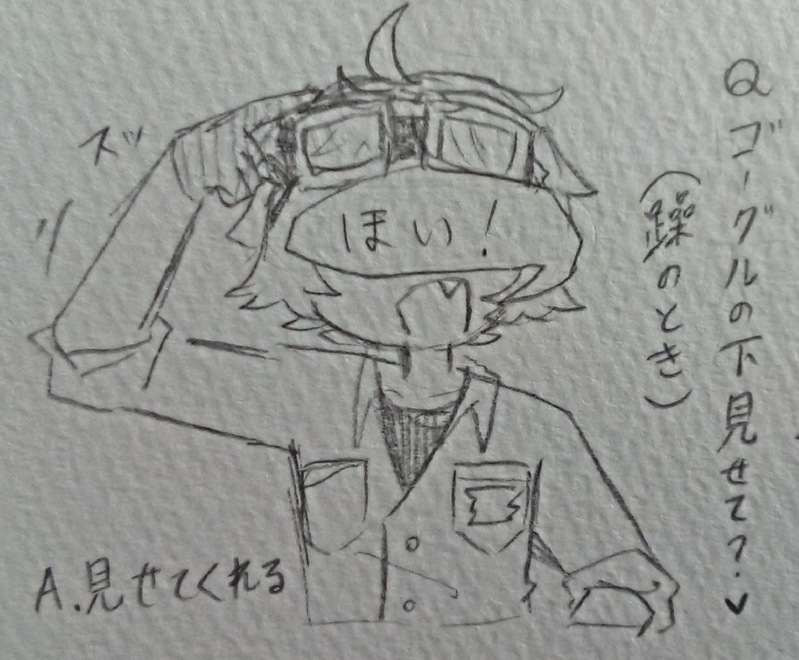 Q ゴーグルの下見せて?♥
(躁のとき)
スッ
ほい!
A.見せてくれる